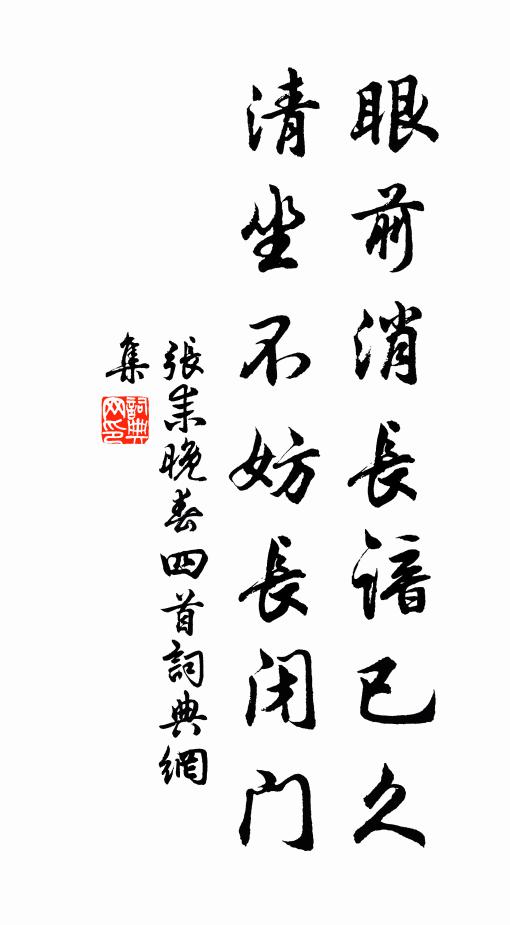 眼前消長諳已久
清坐不妨長闭门
張耒晚春四首詞典網
集
詞典
网印